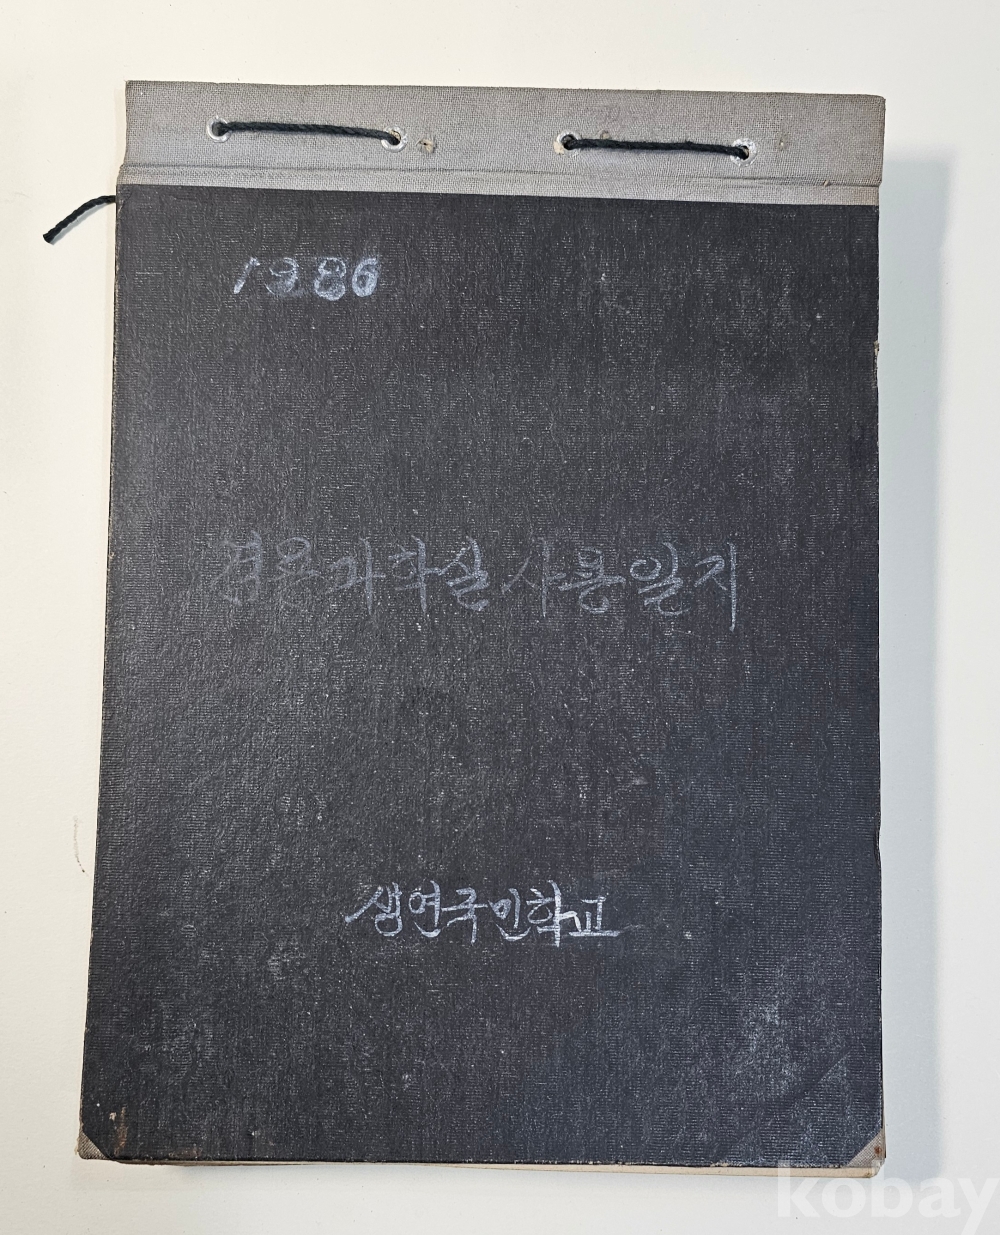 1986
겸용과학실사용일지
생연국민학교
kobay